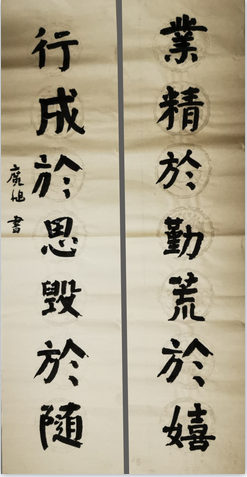 業精於勤荒於嬉
行成於思毀於隨
廣旭書